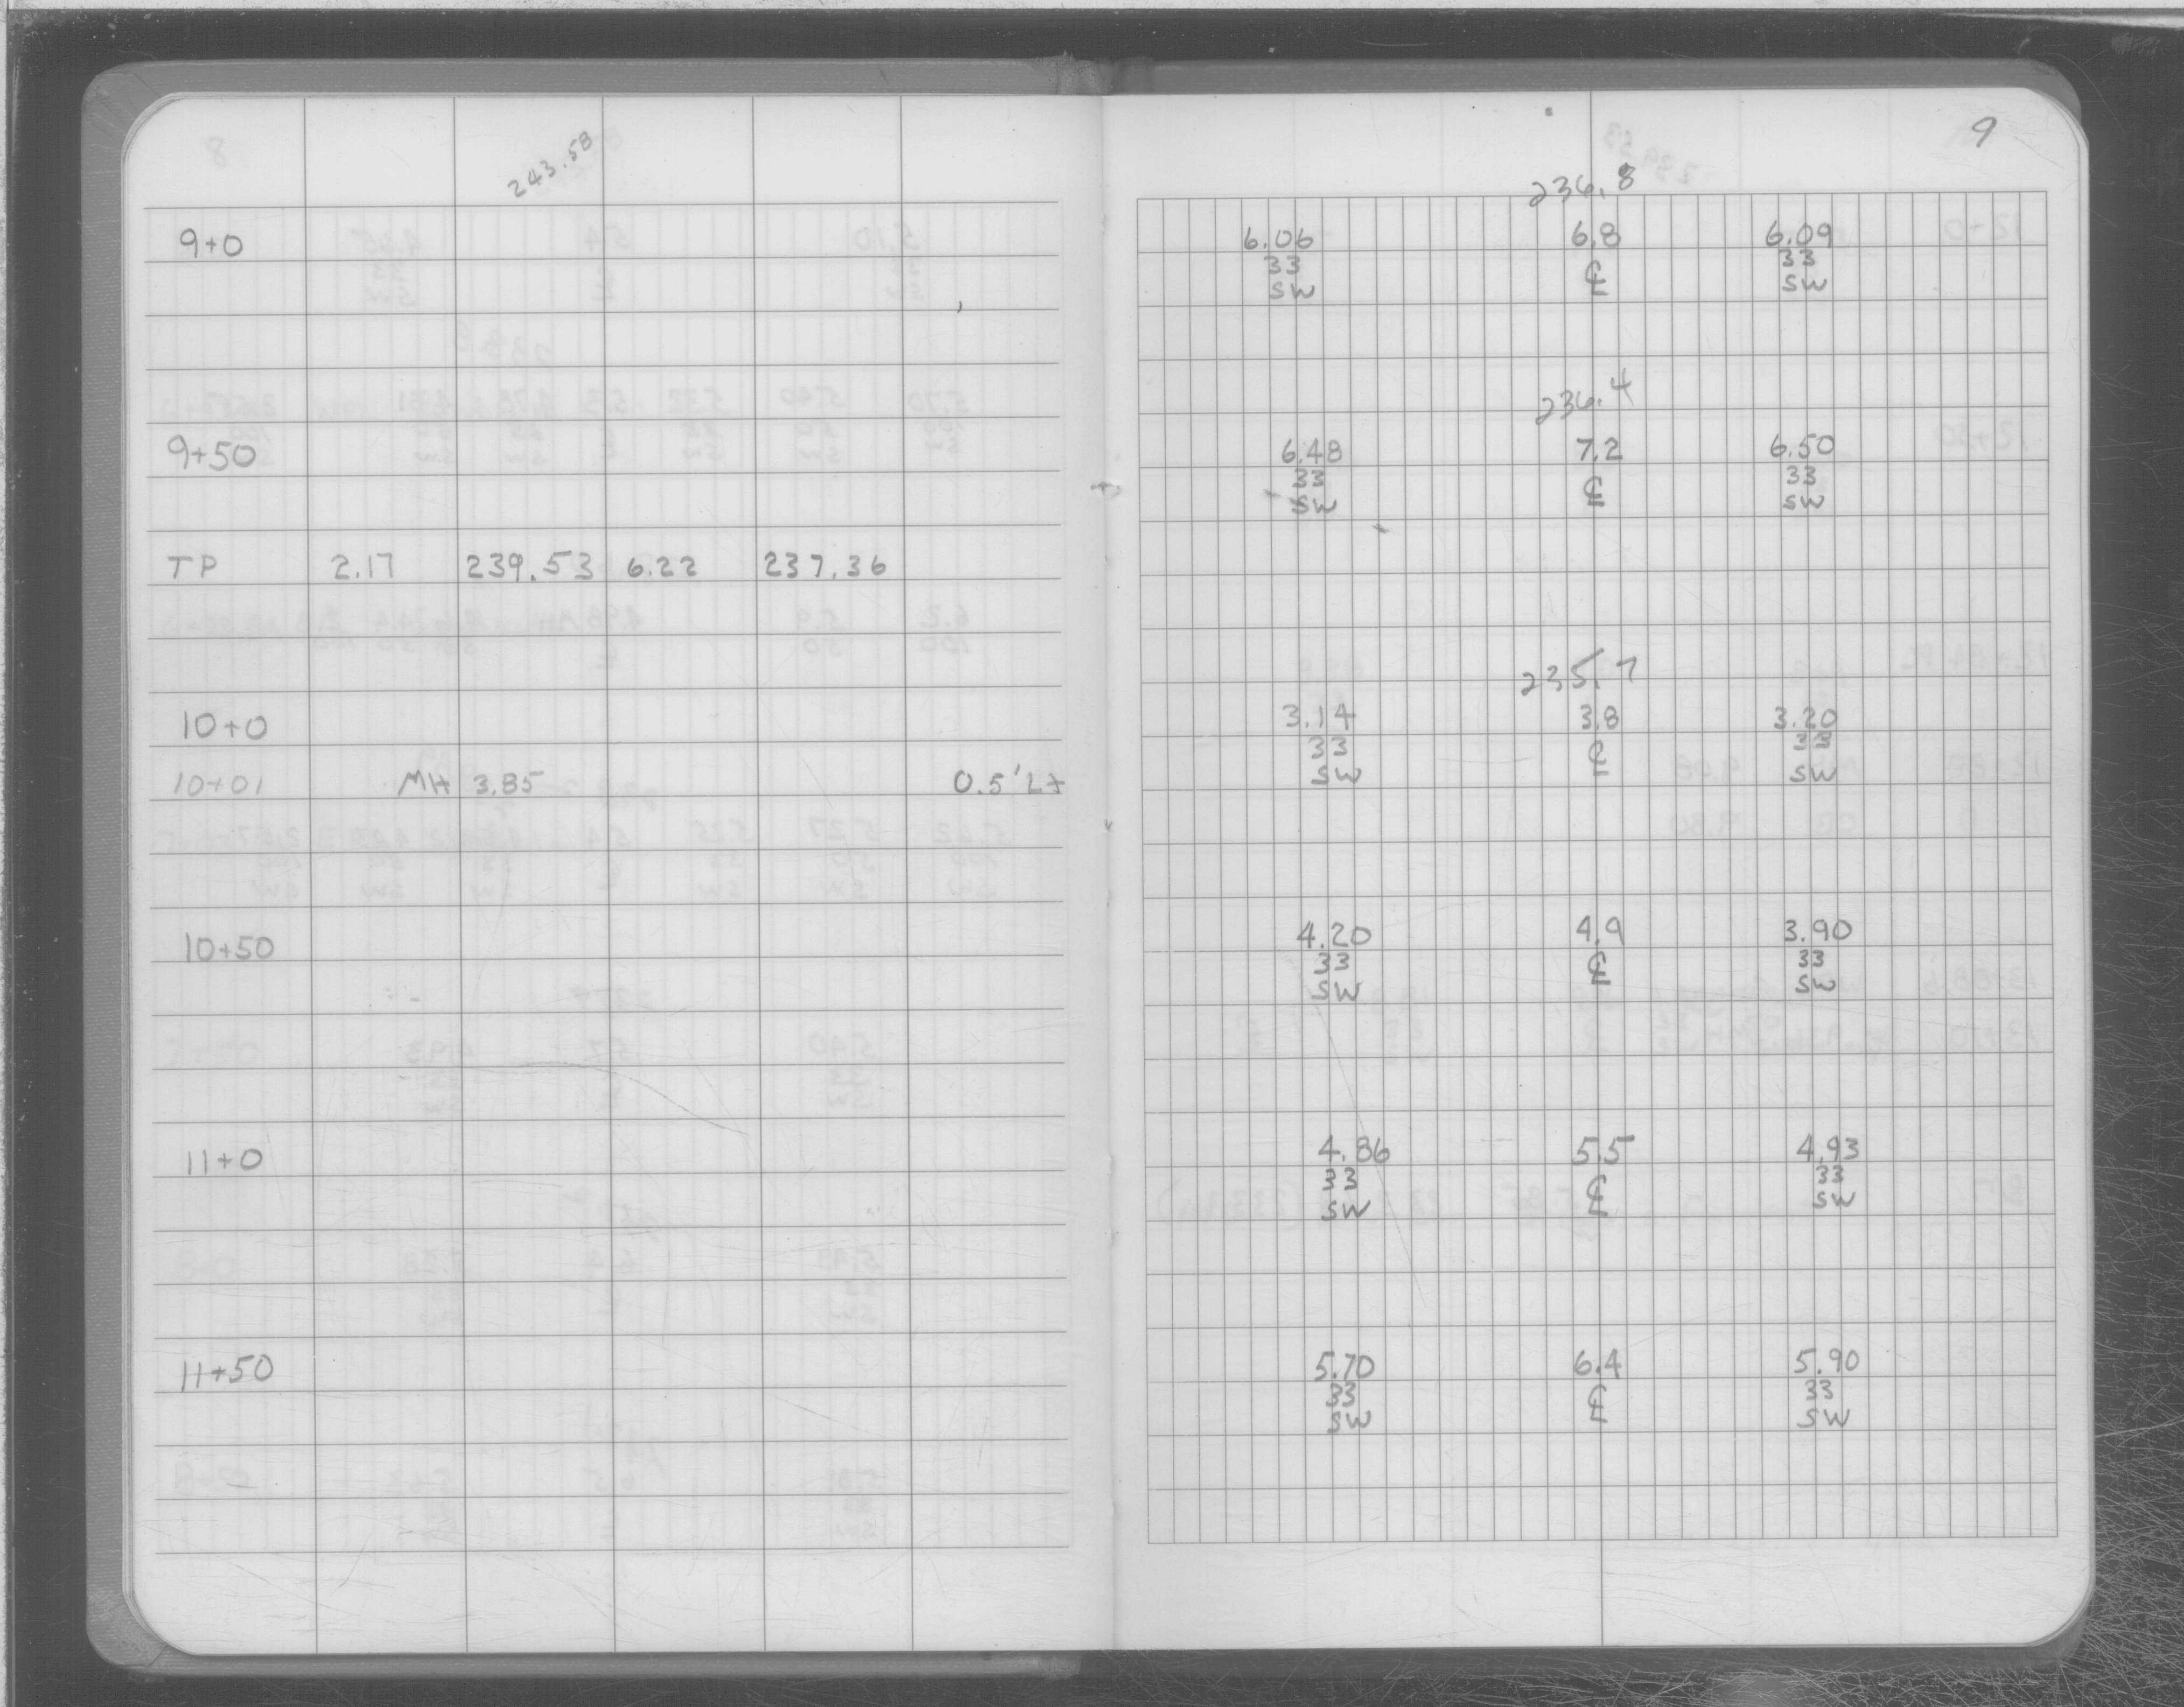 243.58
9+0
9+50
TP 2.17 239.53 6.22 237.36
10+0
10+01 MH 3.85 0.5' Lt
10+50
11+0
11+50
9
236.8
6.06 6.8 6.09
33 ℄ 33
SW SW
236.4
6.48 7.2 6.50
33 ℄ 33
SW SW
235.7
3.14 3.8 3.20
33 ℄ 33
SW SW
4.20 4.9 3.90
33 ℄ 33
SW SW
4.86 5.5 4.93
33 ℄ 33
SW SW
5.70 6.4 5.90
33 ℄ 33
SW SW